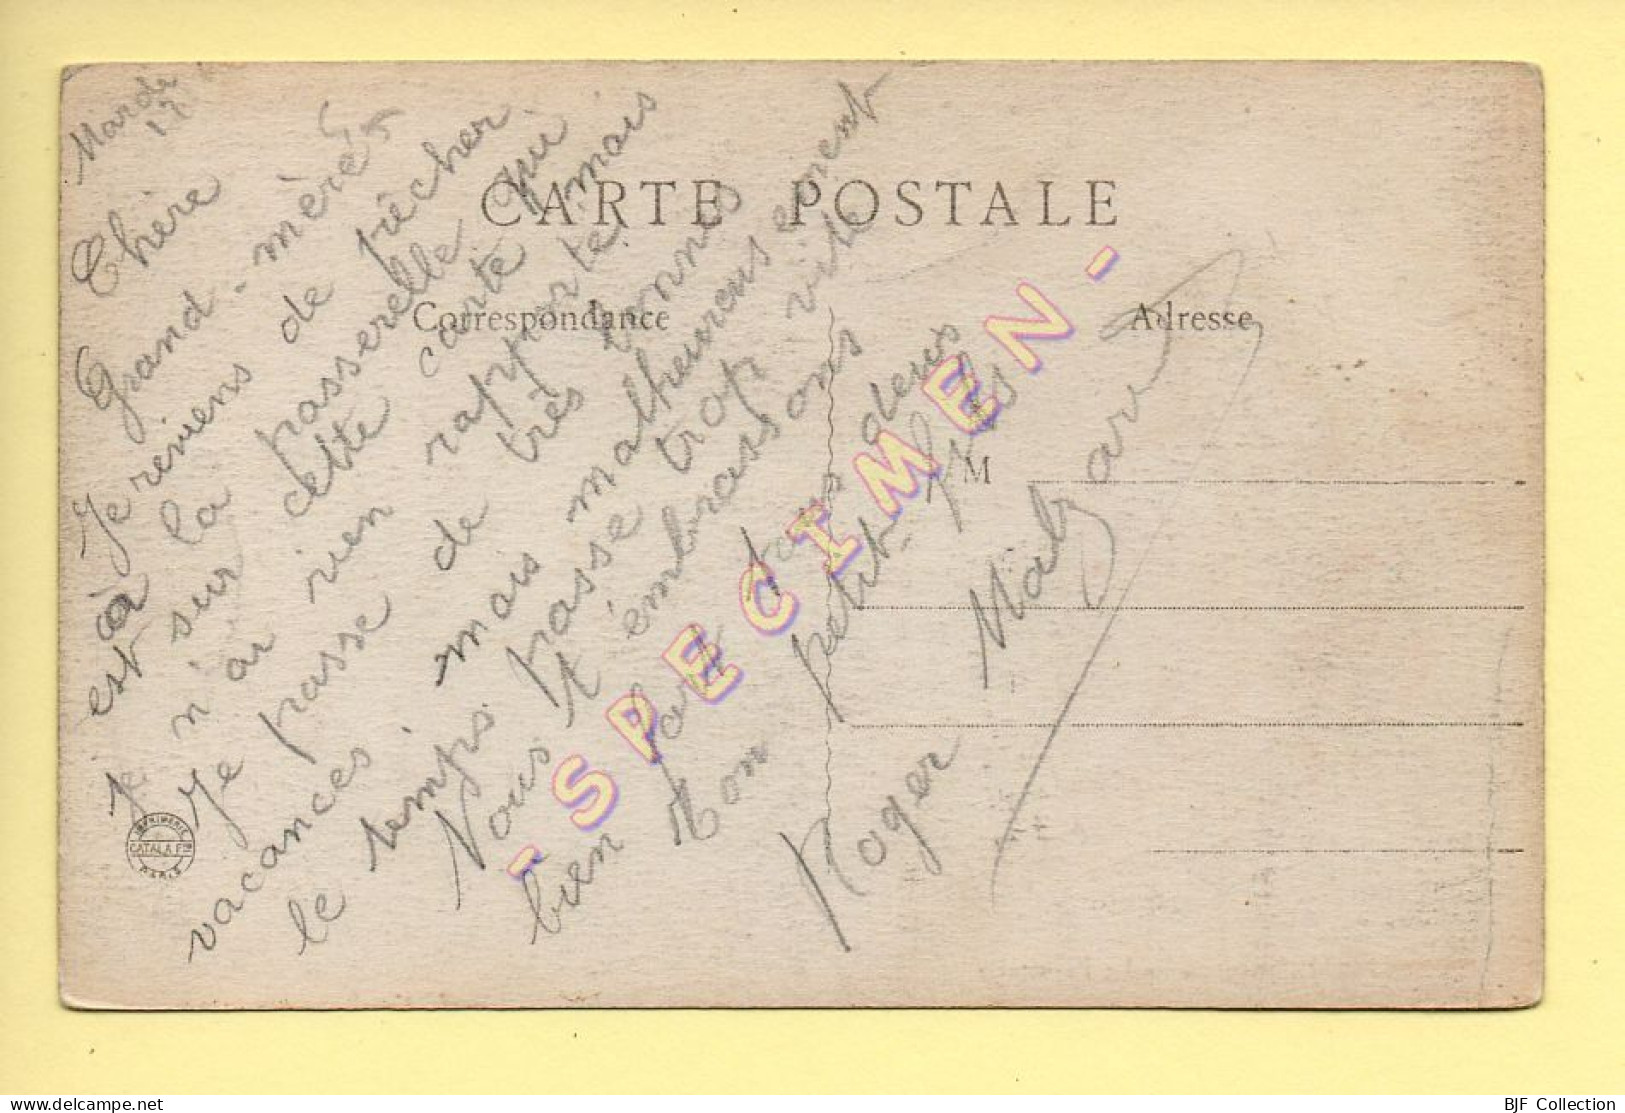 Mardi
12
CARTE POSTALE
Correspondance
Adresse
M
Chère
Grand-mère
Je reviens de pêcher
à la passerelle qui
est sur cette carte mais
je n'ai rien rapporté.
Je passe de très bonnes
vacances, mais malheureusement
le temps passe trop vite
Nous t'embrassons
bien fort tous deux
Ton petit-fils
Roger
IMPRIMERIE
CATALA Fres
PARIS
- SPECIMEN -
BJF Collection